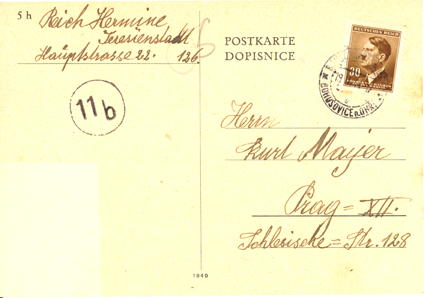 5 h
Reich Hermine
Teresienstadt
Hauptstrasse 22. 126.
11b
POSTKARTE
DOPISNICE
DEUTSCHES REICH
30
BOHUSOVICE
Herrn
Kurt Mayer
Prag = XII.
Schlesische = Str. 128
1940